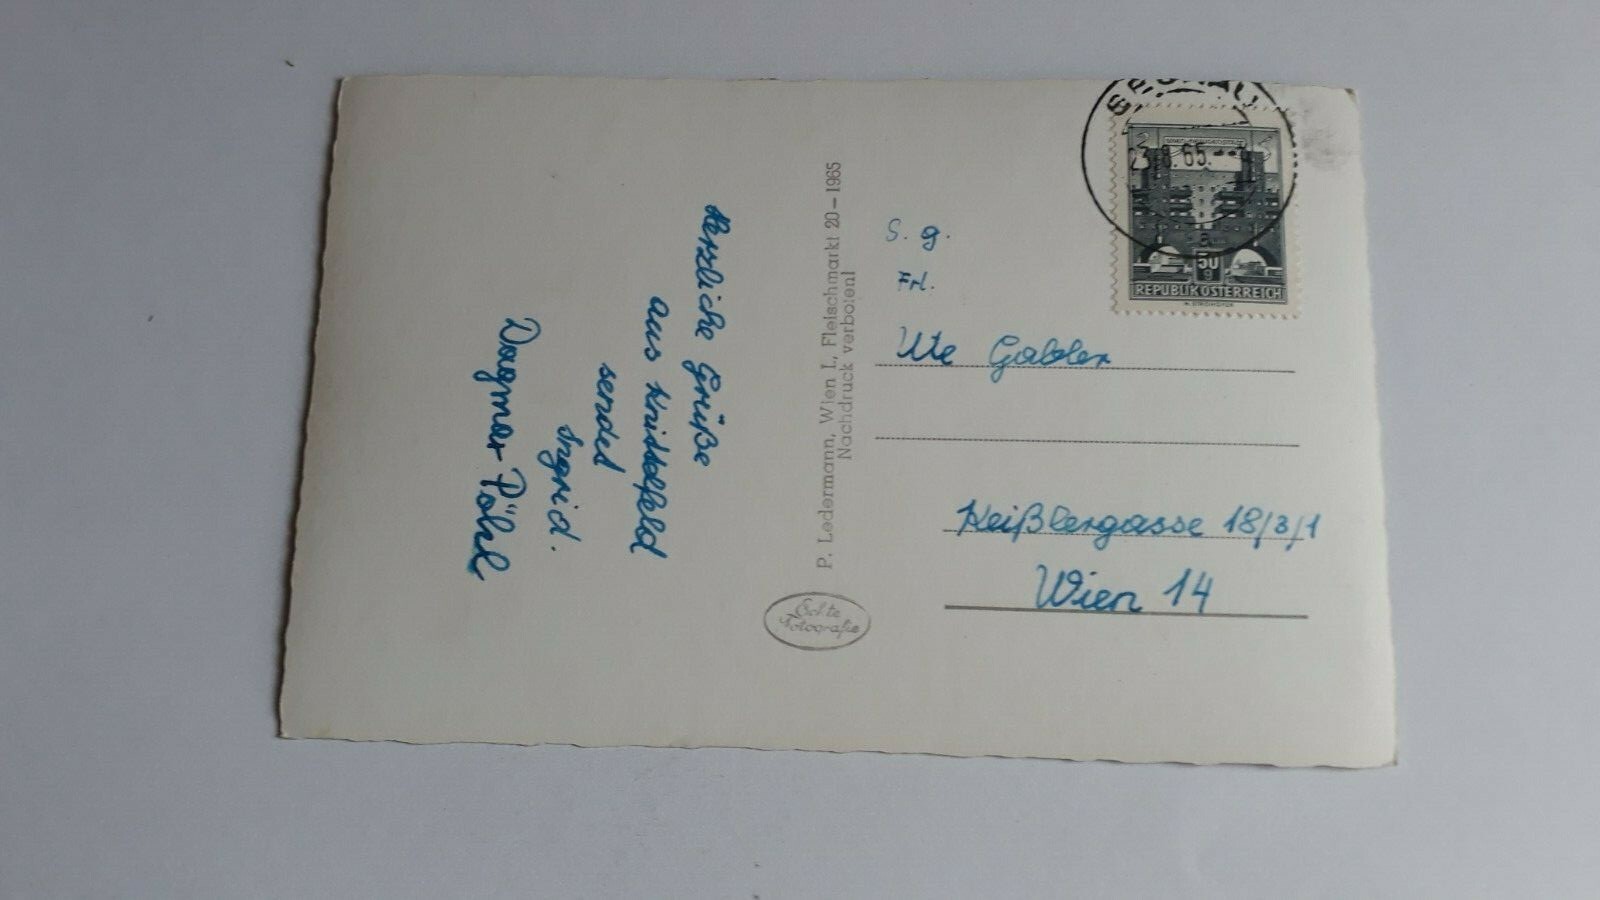 Herzliche Grüße
aus Knittelfeld
sendet
Ingrid.
Dagmar Pöhl
P. Ledermann, Wien I., Fleischmarkt 20 – 1965
Nachdruck verboten!
Echte
Fotografie
23.8.65
50
g
REPUBLIK ÖSTERREICH
S. g.
Frl.
Ute Gabler
Keißlergasse 18/3/1
Wien 14